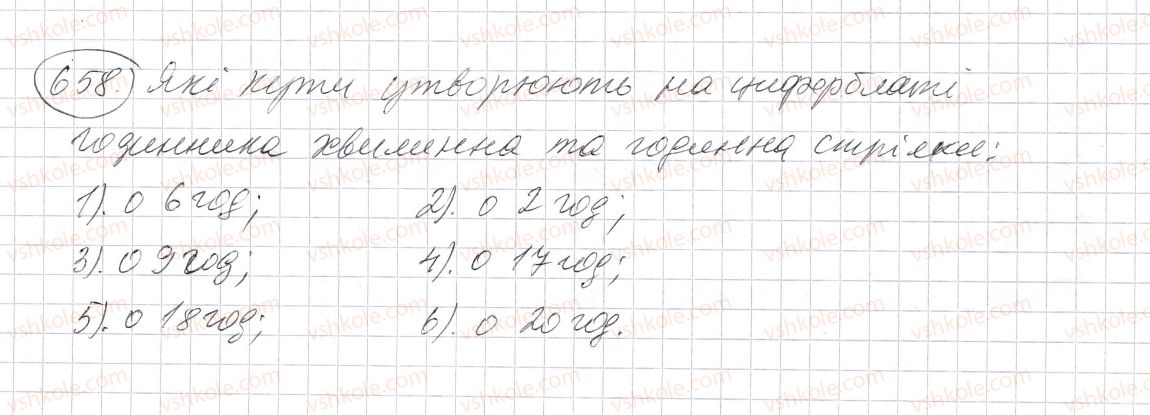 658. Які кути утворюють на циферблаті
годинника хвилинна та годинна стрілки:
1). о 6 год; 2). о 2 год;
3). о 9 год; 4). о 17 год;
5). о 18 год; 6). о 20 год.